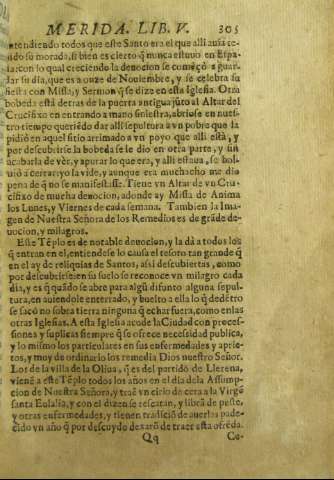 MERIDA. LIB. V. 305
entendiendo todos que este Santo era el que alli auia te-
nido su morada, si bien es cierto q̃ nunca estuuo en Espa-
ña: con lo qual creciendo la deuocion se comẽçò a guar-
dar su dia, que es a onze de Nouiembre, y se celebra su
fiesta con Missa, y Sermon q̃ se dize en esta Iglesia. Otra
bobeda està detras de la puerta antigua jũto al Altar del
Crucifixo en entrando a mano siniestra, abriòse en nues-
tro tiempo queriẽdo dar alli sepultura a vn pobre que la
pidiò en aquel sitio arrimado a vn poyo que alli està, y
por descubrirse la bobeda se le dio en otra parte, y sin
acabarla de vèr, y apurar lo que era, y alli estaua, se bol-
uiò a cerrar: yo la vide, y aunque era muchacho me dio
pena de q̃ no se manifestasse. Tiene vn Altar de vn Cru-
cifixo de mucha deuocion, adonde ay Missa de Anima
los Lunes, y Viernes de cada semana. Tambien la Ima-
gen de Nuestra Señora de los Remedios es de grãde de-
uocion, y milagros.
Este Tẽplo es de notable deuocion, y la dà a todos los
q̃ entran en el, entiendese lo causa el tesoro tan grande q̃
en el ay de reliquias de Santos, assi descubiertas, como
por descubrirse: en su suelo se reconoce vn milagro cada
dia, y es q̃ quãdo se abre para algũ difunto alguna sepul-
tura, en auiendole enterrado, y buelto a ella lo q̃ de dẽtro
se sacò no sobra tierra ninguna q̃ echar fuera, como en las
otras Iglesias. A esta Iglesia acude la Ciudad con proces-
siones y suplicas siempre q̃ se ofrece necessidad publica,
y lo mismo los particulares en sus enfermedades y aprie-
tos, y muy de ordinario los remedia Dios nuestro Señor.
Los de la villa de la Oliua, q̃ es del partido de Llerena,
vienẽ a este Tẽplo todos los años en el dia de la Assump-
cion de Nuestra Señora, y traẽ vn cirio de cera a la Virgẽ
santa Eulalia, y con el dizen se rescatan, y librã de peste,
y otras enfermedades, y tienen tradiciõ de auerlas pade-
cido vn año q̃ por descuydo dexarõ de traer esta ofrẽda.
Qq Co-